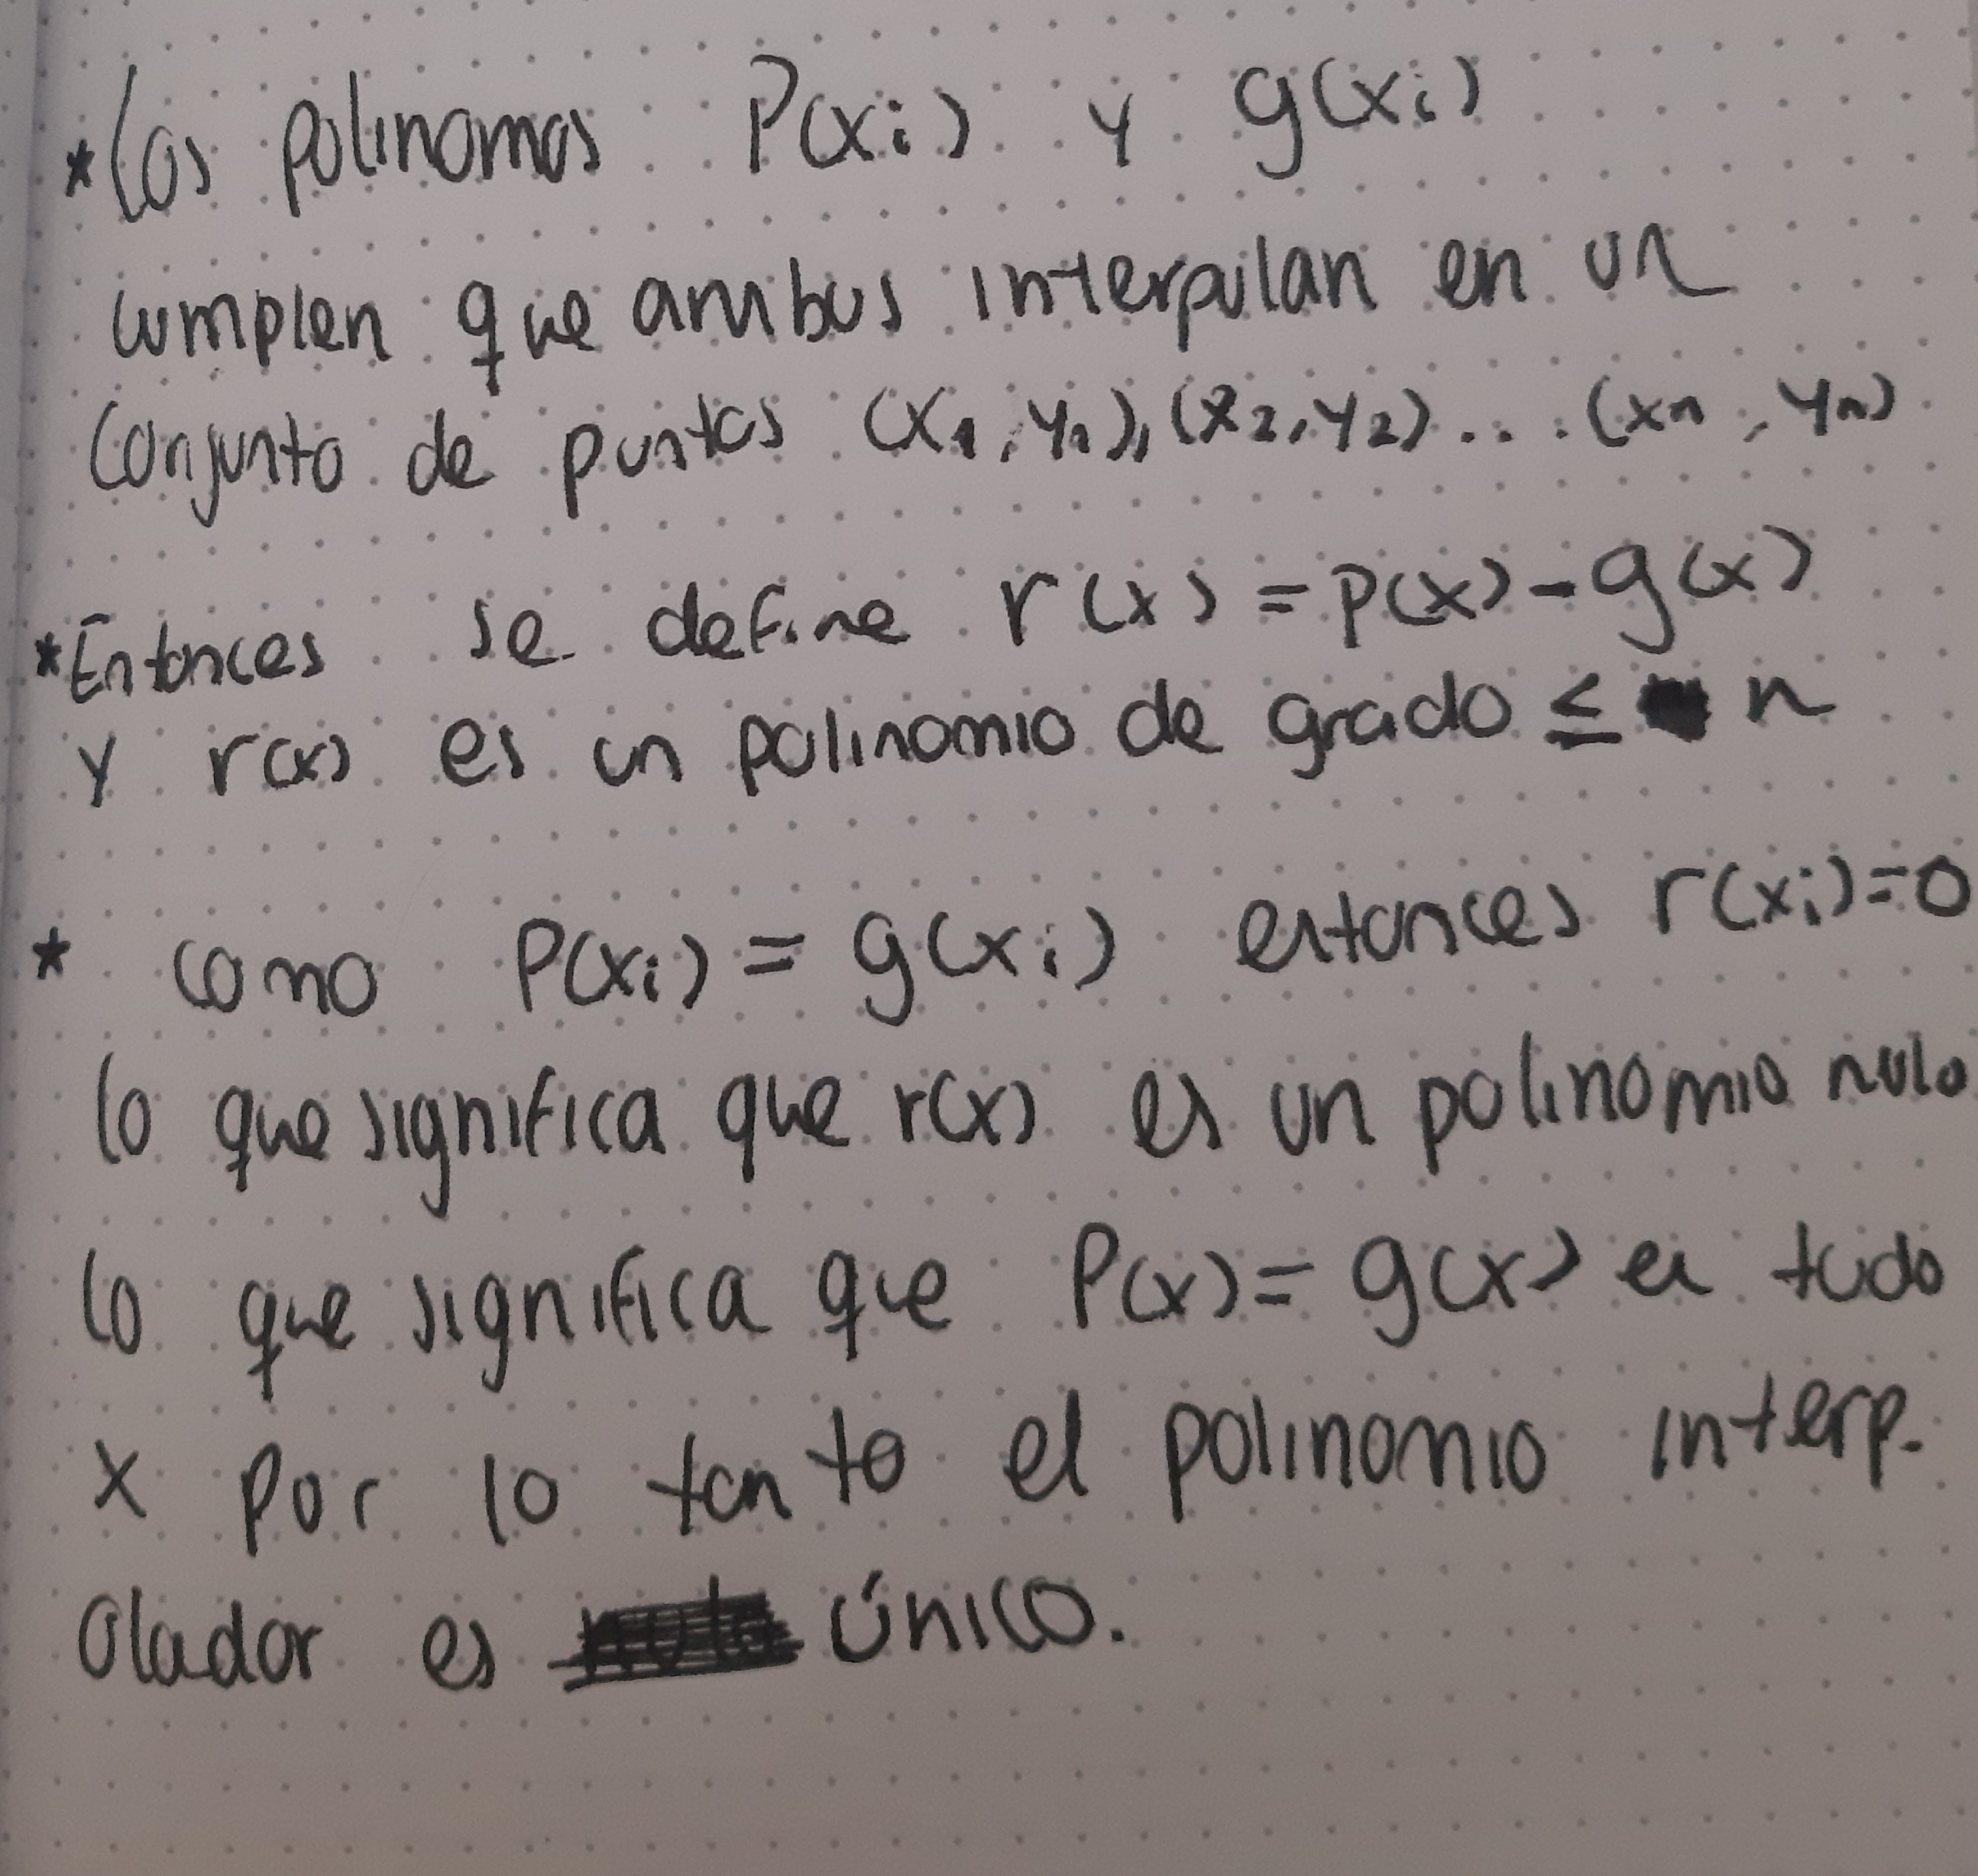 *Los polinomos P(xi) y g(xi)
cumplen que ambos interpolan en un
conjunto de puntos (x1,y1),(x2,y2)...(xn,yn)
*Entonces se define r(x)=p(x)-g(x)
y r(x) es un polinomio de grado ≤ n
* como P(xi)=g(xi) entonces r(xi)=0
lo que significa que r(x) es un polinomio nulo
lo que significa que P(x)=g(x) en todo
x por lo tanto el polinomio interp-
olador es único.